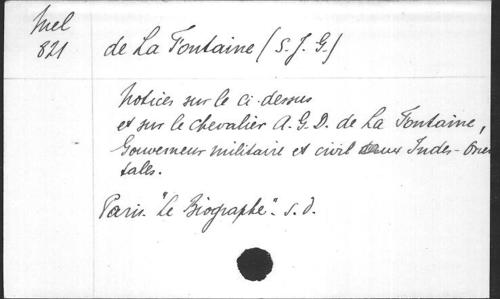 Mel
821
de La Fontaine (S. J. G.)
Notices sur le ci-dessus
et sur le chevalier A. G. D. de La Fontaine,
Gouverneur militaire et civil aux Indes-Orien
tales.
Paris. "Le Biographe". s. d.